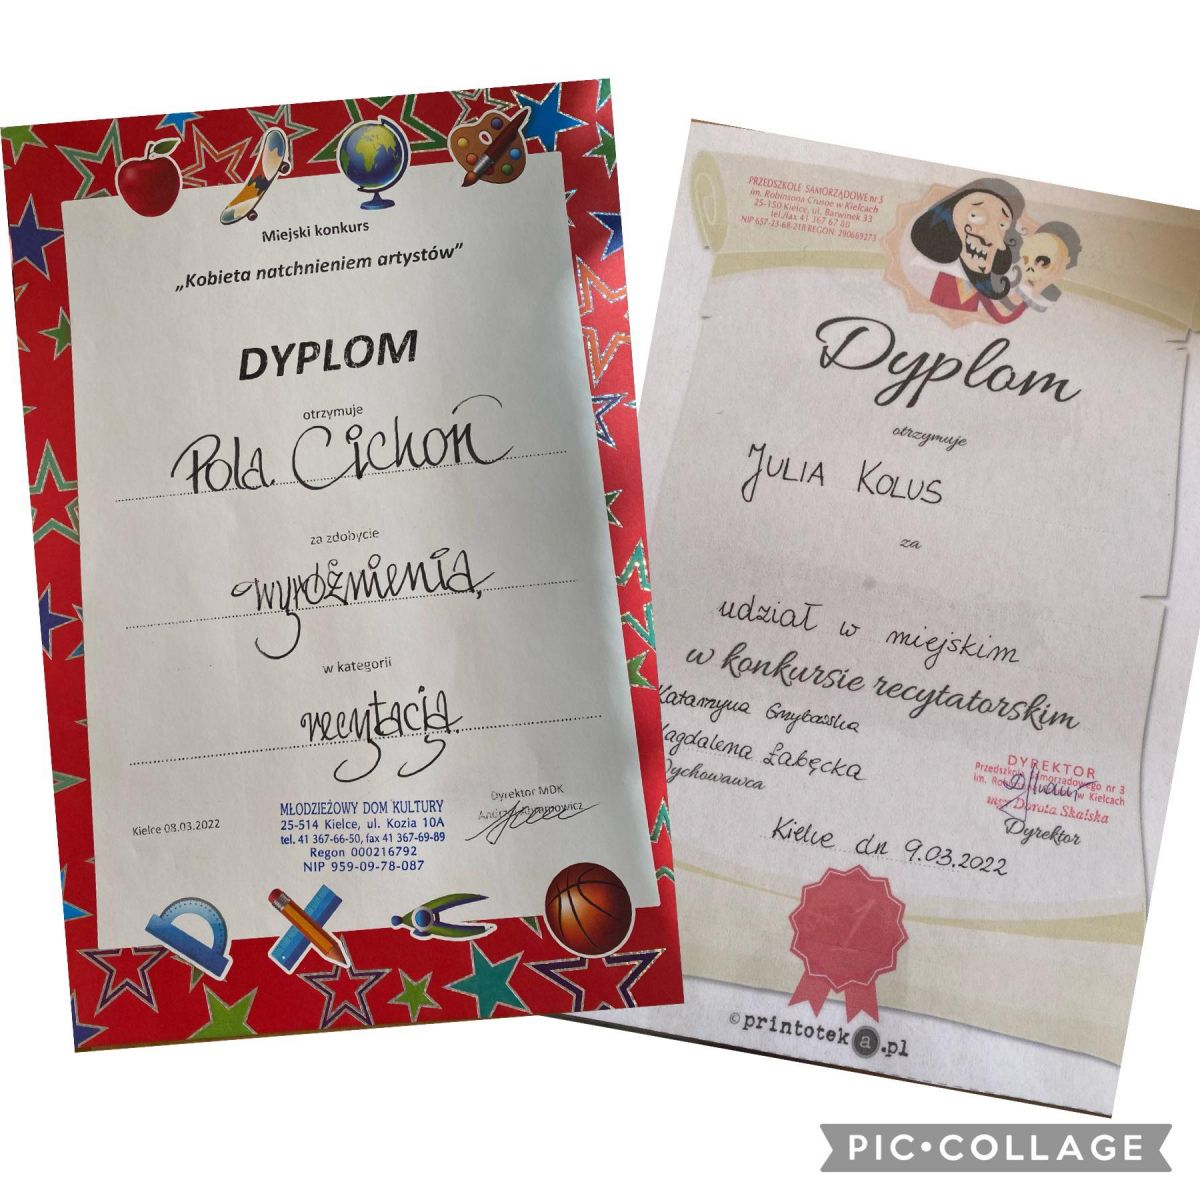 Miejski konkurs
„Kobieta natchnieniem artystów”
DYPLOM
otrzymuje
Pola Cichoń
za zdobycie
wyróżnienia
w kategorii
recytacja
Kielce 08.03.2022
MŁODZIEŻOWY DOM KULTURY
25-514 Kielce, ul. Kozia 10A
tel. 41 367-66-50, fax 41 367-69-89
Regon 000216792
NIP 959-09-78-087
Dyrektor MDK
PRZEDSZKOLE SAMORZĄDOWE nr 3
im. Robinsona Crusoe w Kielcach
25-150 Kielce, ul. Barwinek 33
tel./fax 41 367 67 80
NIP 657-23-68-218 REGON: 290669273
Dyplom
otrzymuje
JULIA KOLUS
za
udział w miejskim
w konkursie recytatorskim
Katarzyna Grzybowska
Magdalena Łabęcka
Wychowawca
DYREKTOR
Przedszkola Samorządowego nr 3
im. Robinsona w Kielcach
mgr Dorota Skalska
Dyrektor
Kielce dn 9.03.2022
1
© printoteka.pl
PIC•COLLAGE